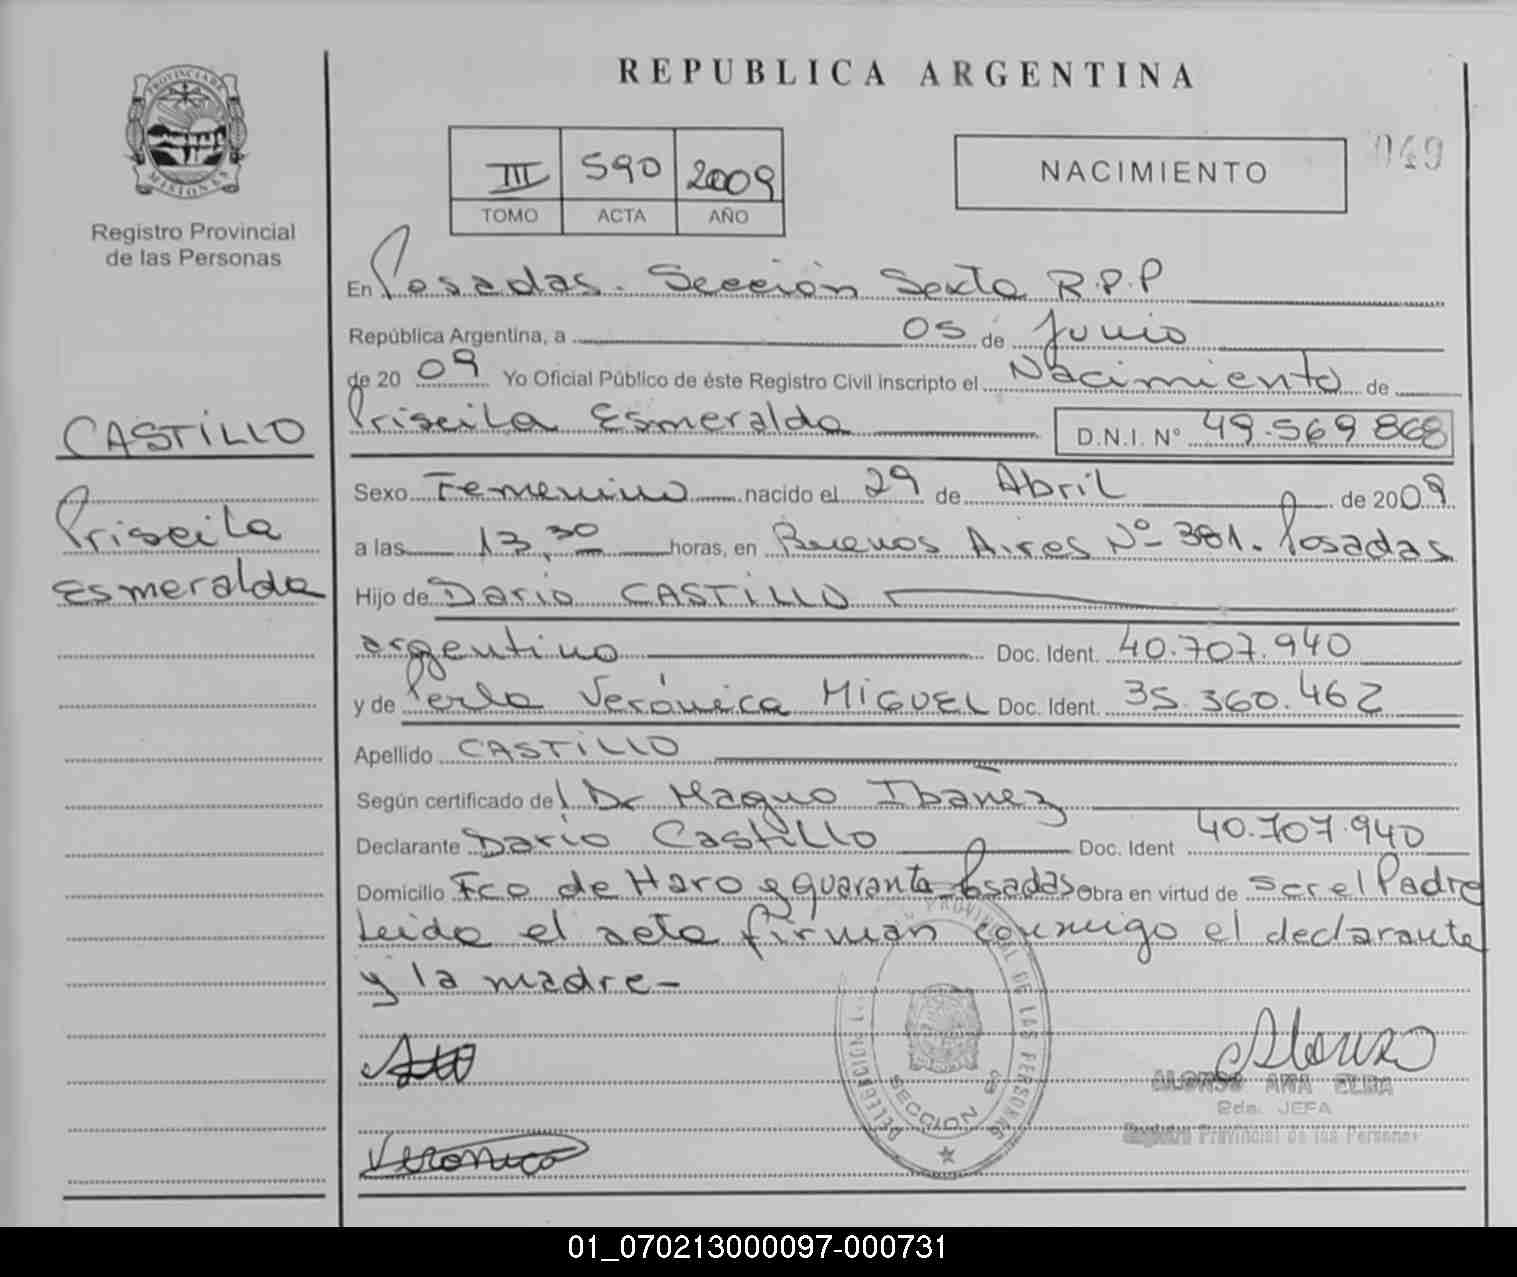 REPUBLICA ARGENTINA
PROVINCIA DE MISIONES
Registro Provincial
de las Personas
III 590 2009
TOMO ACTA AÑO
NACIMIENTO
049
En Posadas. Sección Sexta R.P.P
República Argentina, a 05 de Junio
de 20 09 Yo Oficial Público de éste Registro Civil inscripto el Nacimiento de
Priscila Esmeralda D.N.I. Nº 49.569 868
CASTILLO
Priscila
Esmeralda
Sexo Femenino nacido el 29 de Abril de 2009
a las 13,30 horas, en Buenos Aires Nº 381. Posadas
Hijo de Dario CASTILLO
argentino Doc. Ident. 40.707.940
y de Perla Verónica MIGUEL Doc. Ident. 35.360.462
Apellido CASTILLO
Según certificado del Dr Magno Ibañez
Declarante Dario Castillo Doc. Ident 40.707.940
Domicilio Fco de Haro y quaranta Posadas Obra en virtud de ser el Padre
Leida el acta firman conmigo el declarante
y la madre-
PROVINCIAL DE LAS PERSONAS
SECCION 6
Alonso
ALONSO ANA ELBA
JEFA
Registro Provincial de las Personas
Veronica
01_070213000097-000731